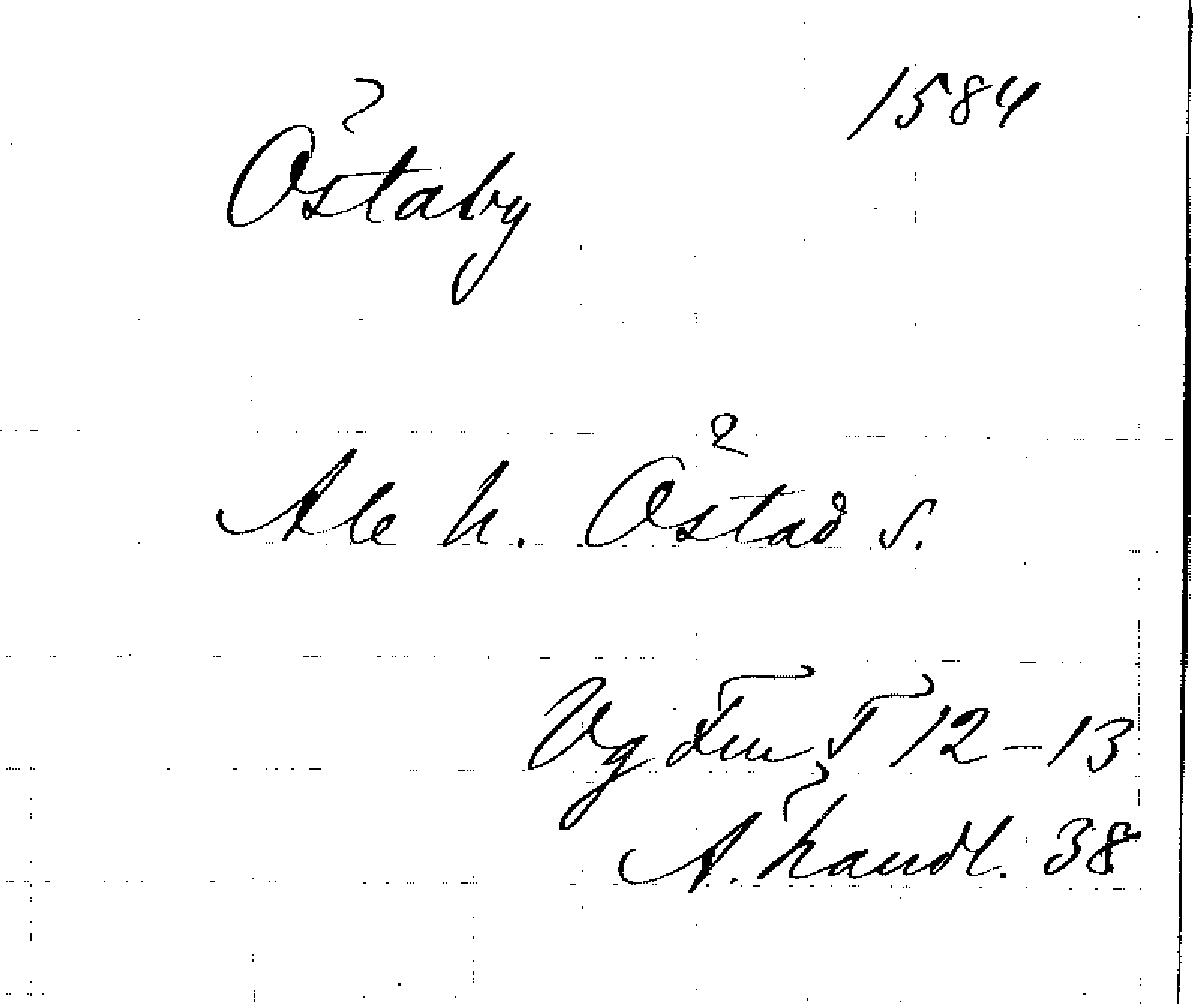 Östaby 1584
Ale h. Östad s.
Vg Fru T 12-13
A. handl. 38